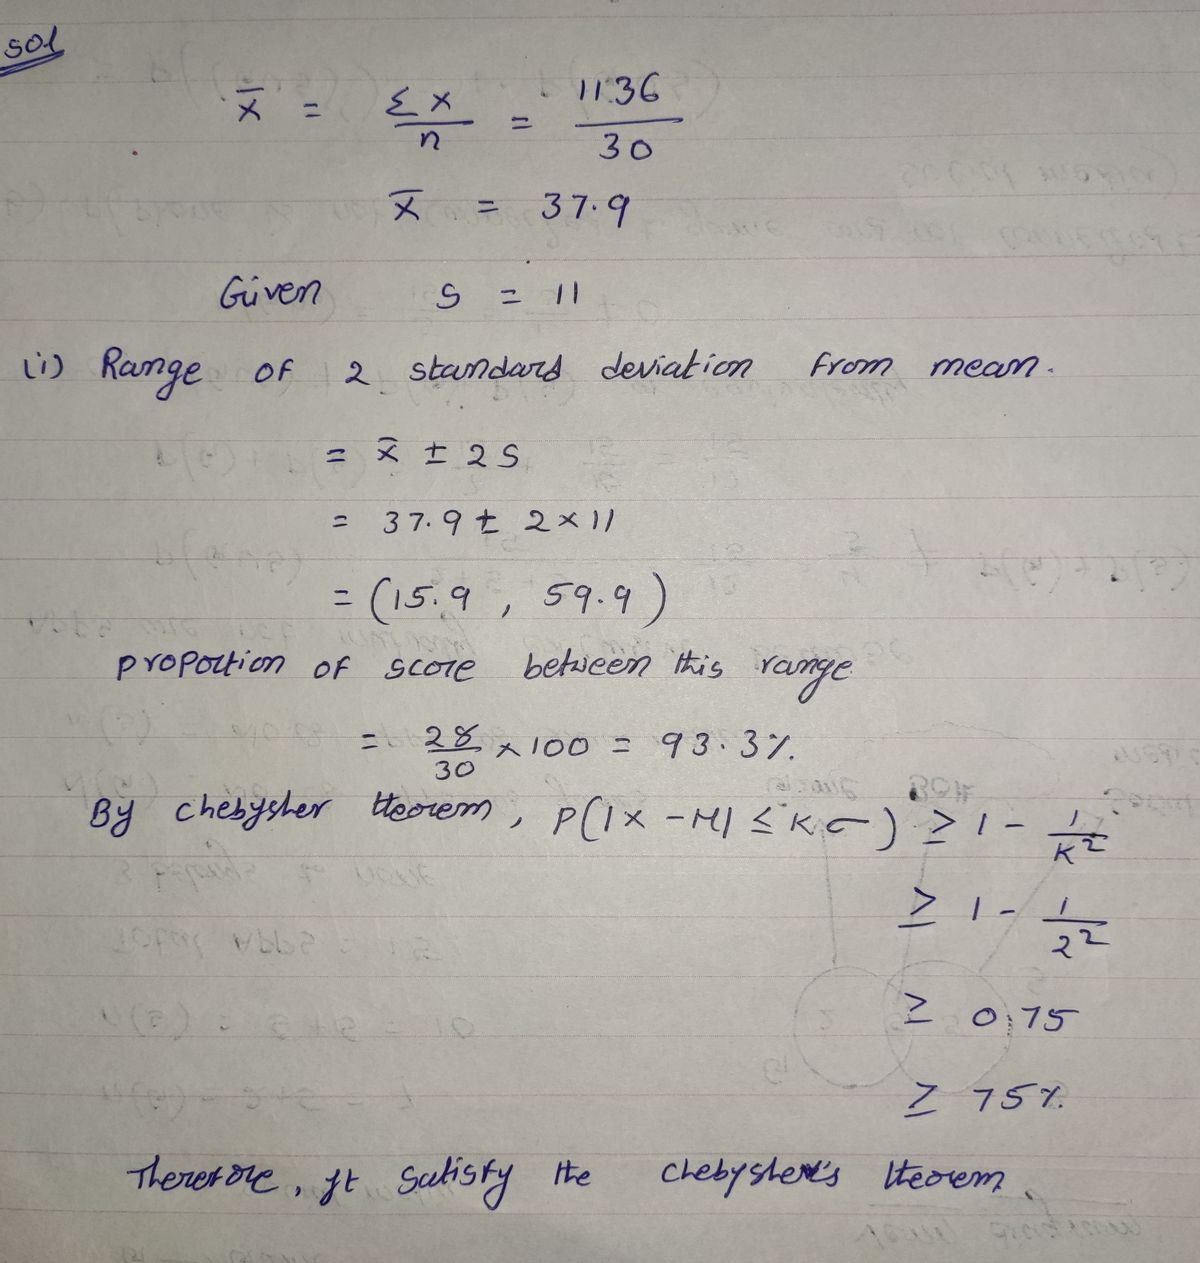 sol
x̄ = Σx/n = 1136/30
x̄ = 37.9
Given s = 11
(i) Range of 2 standard deviation from mean.
= x̄ ± 2s
= 37.9 ± 2×11
= (15.9, 59.9)
proportion of score between this range
= 28/30 × 100 = 93.3%.
By chebysher theorem, P(|x-M| ≤ Kσ) ≥ 1 - 1/K²
≥ 1 - 1/2²
≥ 0.75
≥ 75%.
Therefore, it satisfy the chebysher's theorem